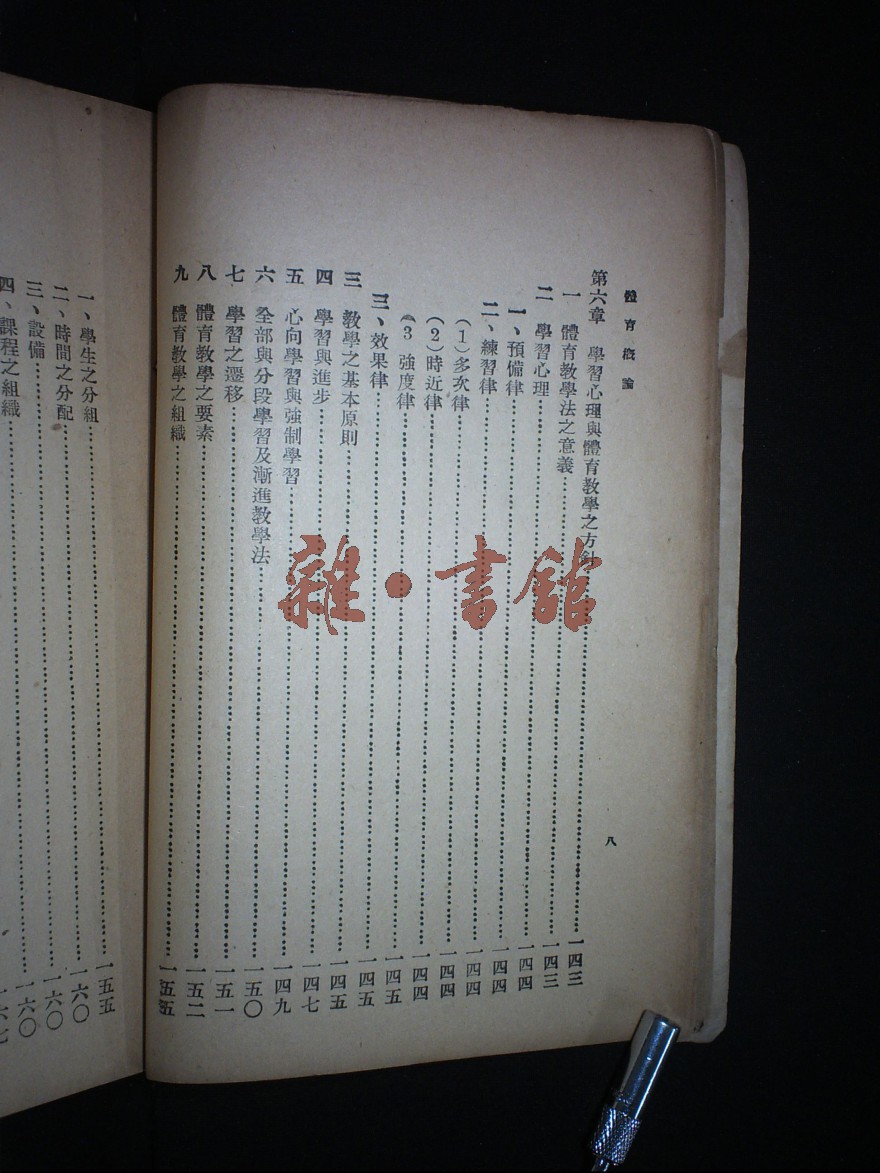 體育概論
八
第六章 學習心理與體育教學之方針……一四三
一 體育教學法之意義……一四三
二 學習心理……一四四
一、預備律……一四四
二、練習律……一四四
(1)多次律……一四四
(2)時近律……一四四
(3 強度律……一四五
三、效果律……一四五
三 教學之基本原則……一四五
四 學習與進步……一四七
五 心向學習與強制學習……一四九
六 全部與分段學習及漸進教學法……一五〇
七 學習之遷移……一五一
八 體育教學之要素……一五二
九 體育教學之組織……一五五
一、學生之分組……一五五
二、時間之分配……一六〇
三、設備……一六〇
四、課程之組織……一六〇
雜·書館